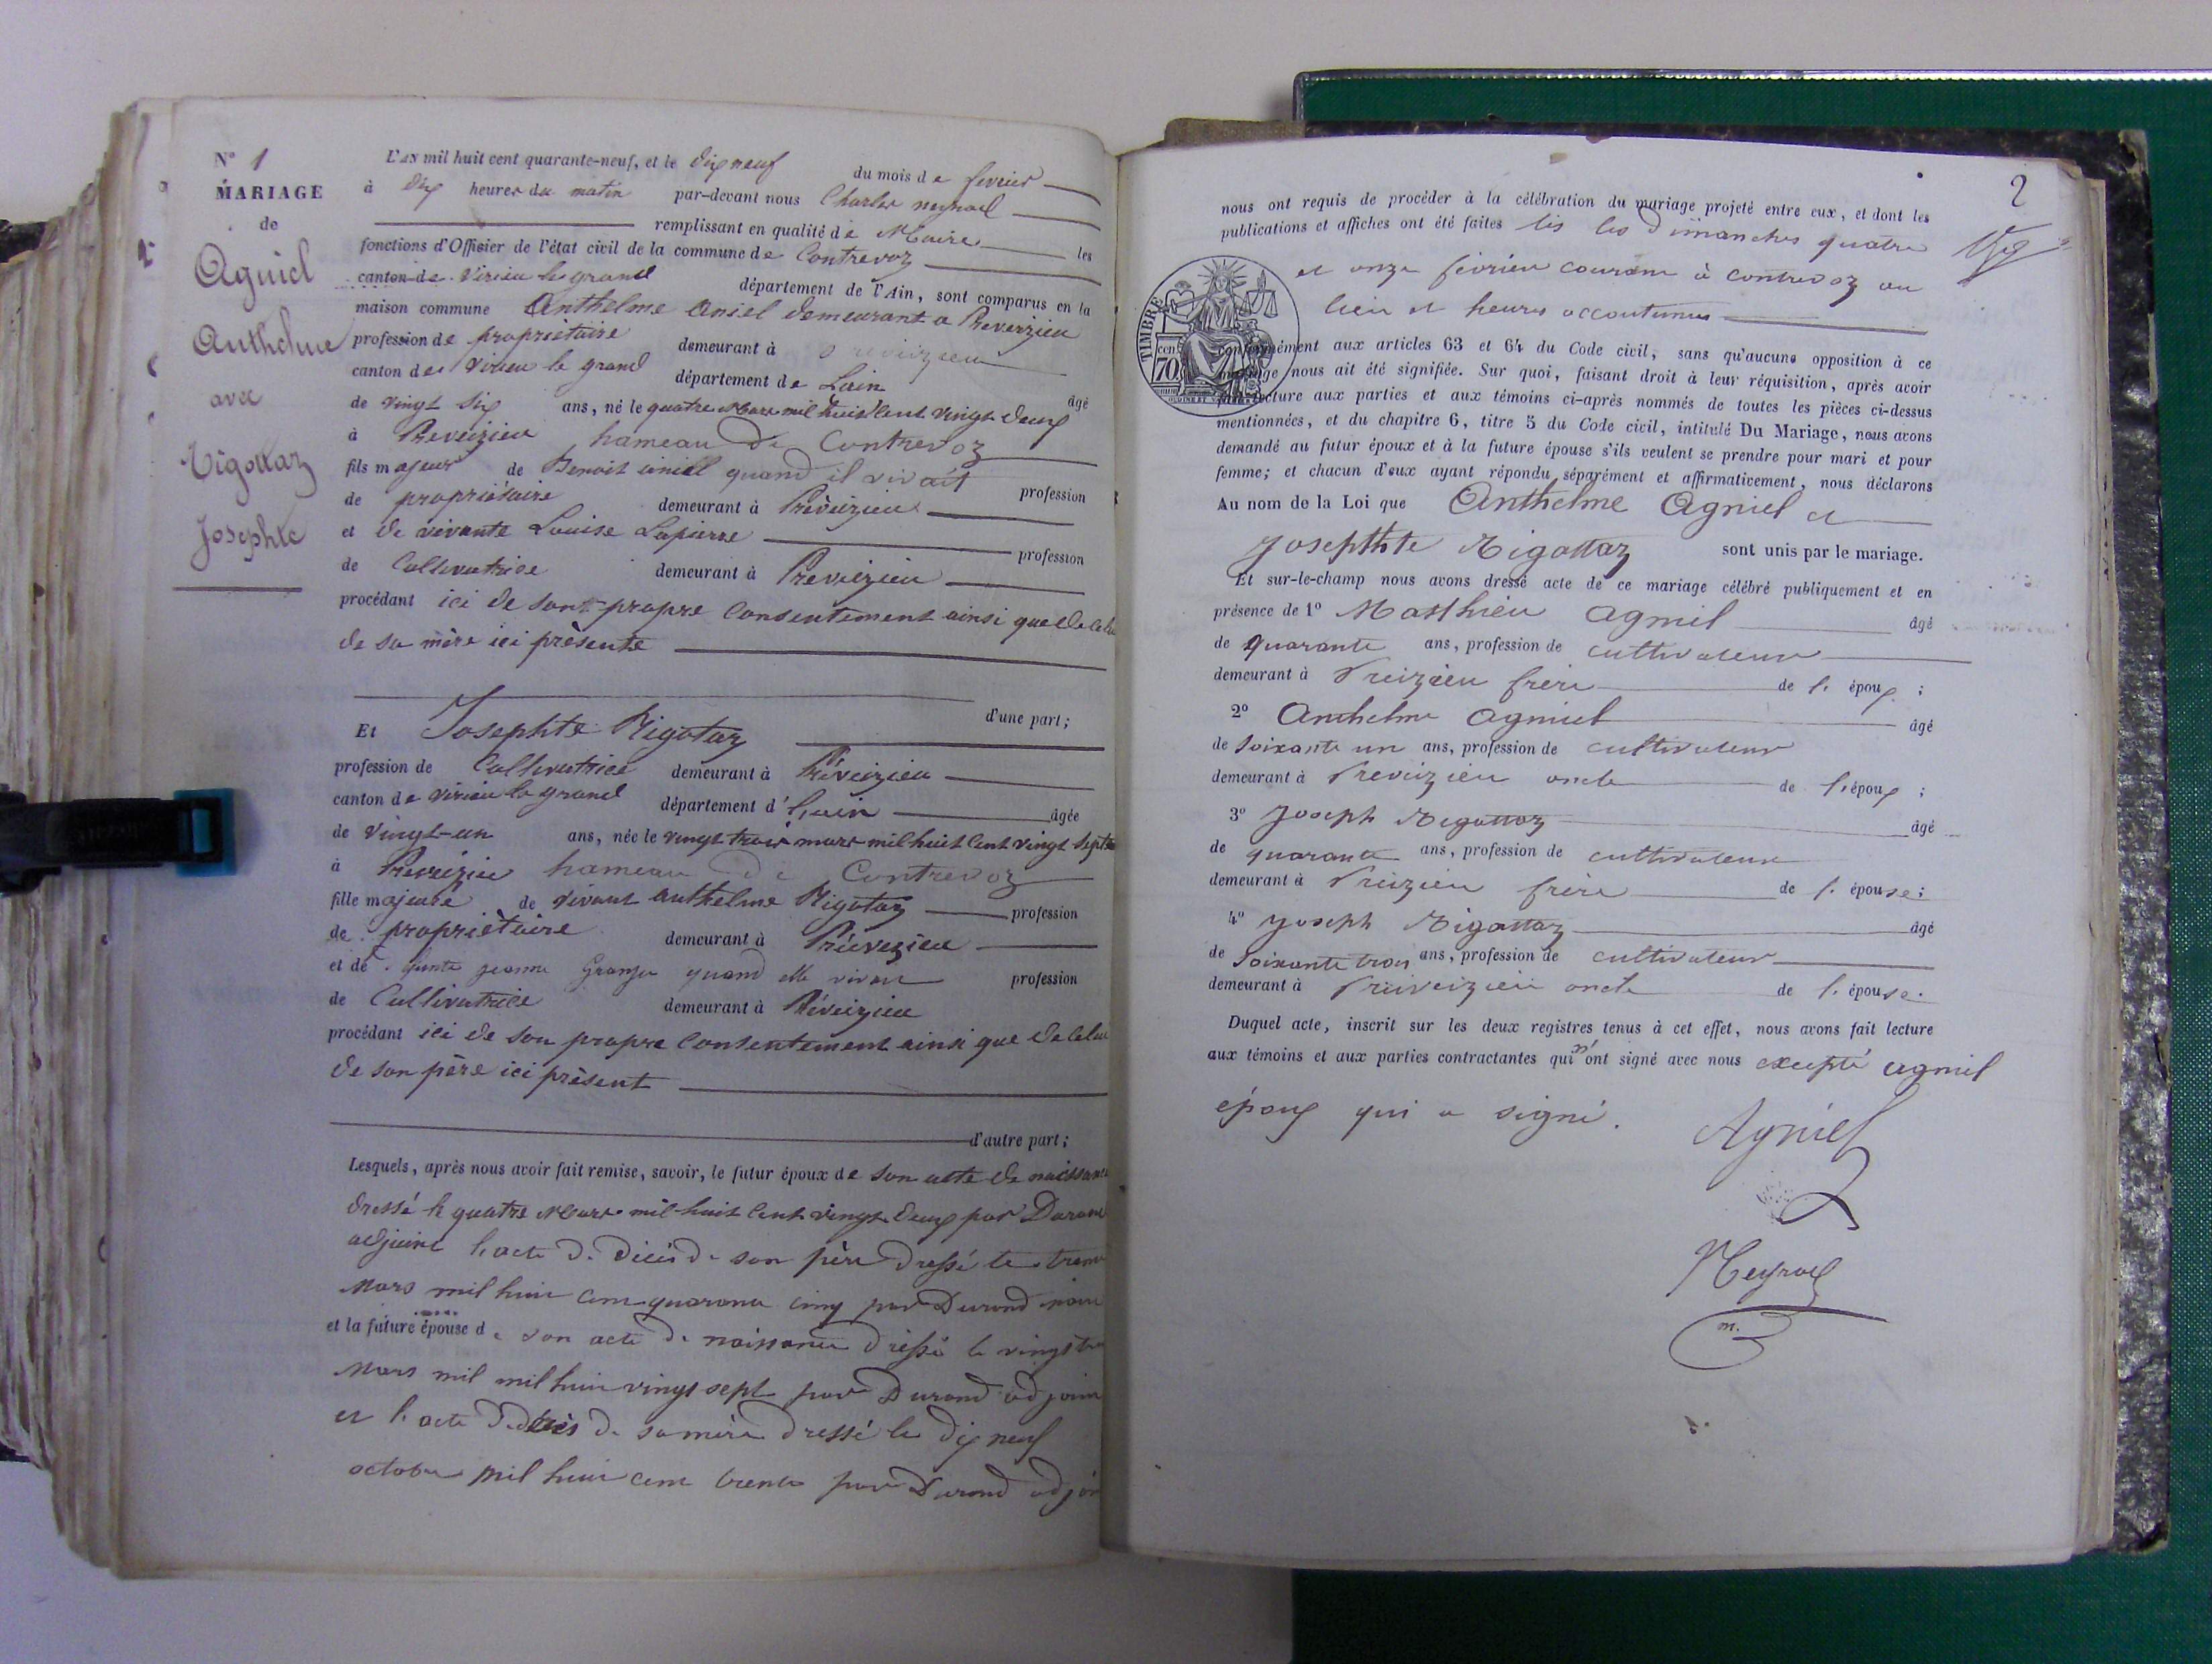 N° 1
MARIAGE
de
Agniel
Anthelme
avec
Rigottaz
Josephte
L'AN mil huit cent quarante-neuf, et le dix neuf du mois de fevrier
à dix heures du matin par-devant nous Charles meynael
remplissant en qualité de Maire les
fonctions d'Officier de l'état civil de la commune de Contrevoz
canton de Virieu le grand département de l'Ain, sont comparus en la
maison commune Anthelme aniel demeurant a Preveizieu
profession de propriétaire demeurant à Preveizieu
canton de Virieu le grand département de Lain âgé
de vingt six ans, né le quatre Mars mil huit Cent vingt deux
à Preveizieu hameau de Contrevoz
fils majeur de Benoit aniel quand il vivait profession
de propriétaire demeurant à Prèveizieu
et de vivante Louise Lapierre profession
de Cultivatrice demeurant à Preveizieu
procédant ici de sont propre Consentement ainsi que de celui
de sa mère ici présente
d'une part;
Et Josephte Rigotaz
profession de Cultivatrice demeurant à Prèveizieu
canton de virieu le grand département d' Lain âgée
de vingt-un ans, née le vingt trois mars mil huit Cent vingt sept
à Preveizieu hameau de Contrevoz
fille majeure de vivant anthelme Rigotaz profession
de propriètaire demeurant à Prèvezieu
et de funte jeanne Granju quand elle vivait profession
de Cultivatrice demeurant à Prèveizieu
procédant ici de son propre Consentement ainsi que de Celui
de son père ici présent
d'autre part;
Lesquels, après nous avoir fait remise, savoir, le futur époux de son acte de naissance
dressé le quatre Mars mil huit Cent vingt deux par Durand
adjoint l'acte de décés de son père dressé le trente
Mars mil huit cent quarante cinq par Durand maire
et la future épouse de son acte de naissance dressé le vingt
Mars mil mil huit vingt sept par Durand adjoint
et l'acte de décès de sa mère dressé le dix neuf
octobre mil huit cent trente par Durand adjoi
2
nous ont requis de procéder à la célébration du mariage projeté entre eux, et dont les
publications et affiches ont été faites les les dimanches quatre
et onze février courant à Contrevoz au
lieu et heures accoutumes
TIMBRE
70
conformément aux articles 63 et 64 du Code civil, sans qu'aucune opposition à ce
mariage nous ait été signifiée. Sur quoi, faisant droit à leur réquisition, après avoir
fait lecture aux parties et aux témoins ci-après nommés de toutes les pièces ci-dessus
mentionnées, et du chapitre 6, titre 5 du Code civil, intitulé Du Mariage, nous avons
demandé au futur époux et à la future épouse s'ils veulent se prendre pour mari et pour
femme; et chacun d'eux ayant répondu séparément et affirmativement, nous déclarons
Au nom de la Loi que Anthelme Agniel et
Josephte Rigottaz sont unis par le mariage.
Et sur-le-champ nous avons dressé acte de ce mariage célébré publiquement et en
présence de 1° Matthieu Agniel âgé
de quarante ans, profession de cultivateur
demeurant à Preizieu frère de l'époux;
2° Anthelme Agniel âgé
de Soixante un ans, profession de cultivateur
demeurant à Preveizieu oncle de l'époux;
3° Joseph Rigottaz âgé
de quarante ans, profession de cultivateur
demeurant à Preizieu frère de l'épouse;
4° Joseph Rigottaz âgé
de Soixante trois ans, profession de cultivateur
demeurant à Preiveizieu oncle de l'épouse.
Duquel acte, inscrit sur les deux registres tenus à cet effet, nous avons fait lecture
aux témoins et aux parties contractantes qui n'ont signé avec nous excepté agniel
époux qui a signé.
Agniel
Meynael
m.